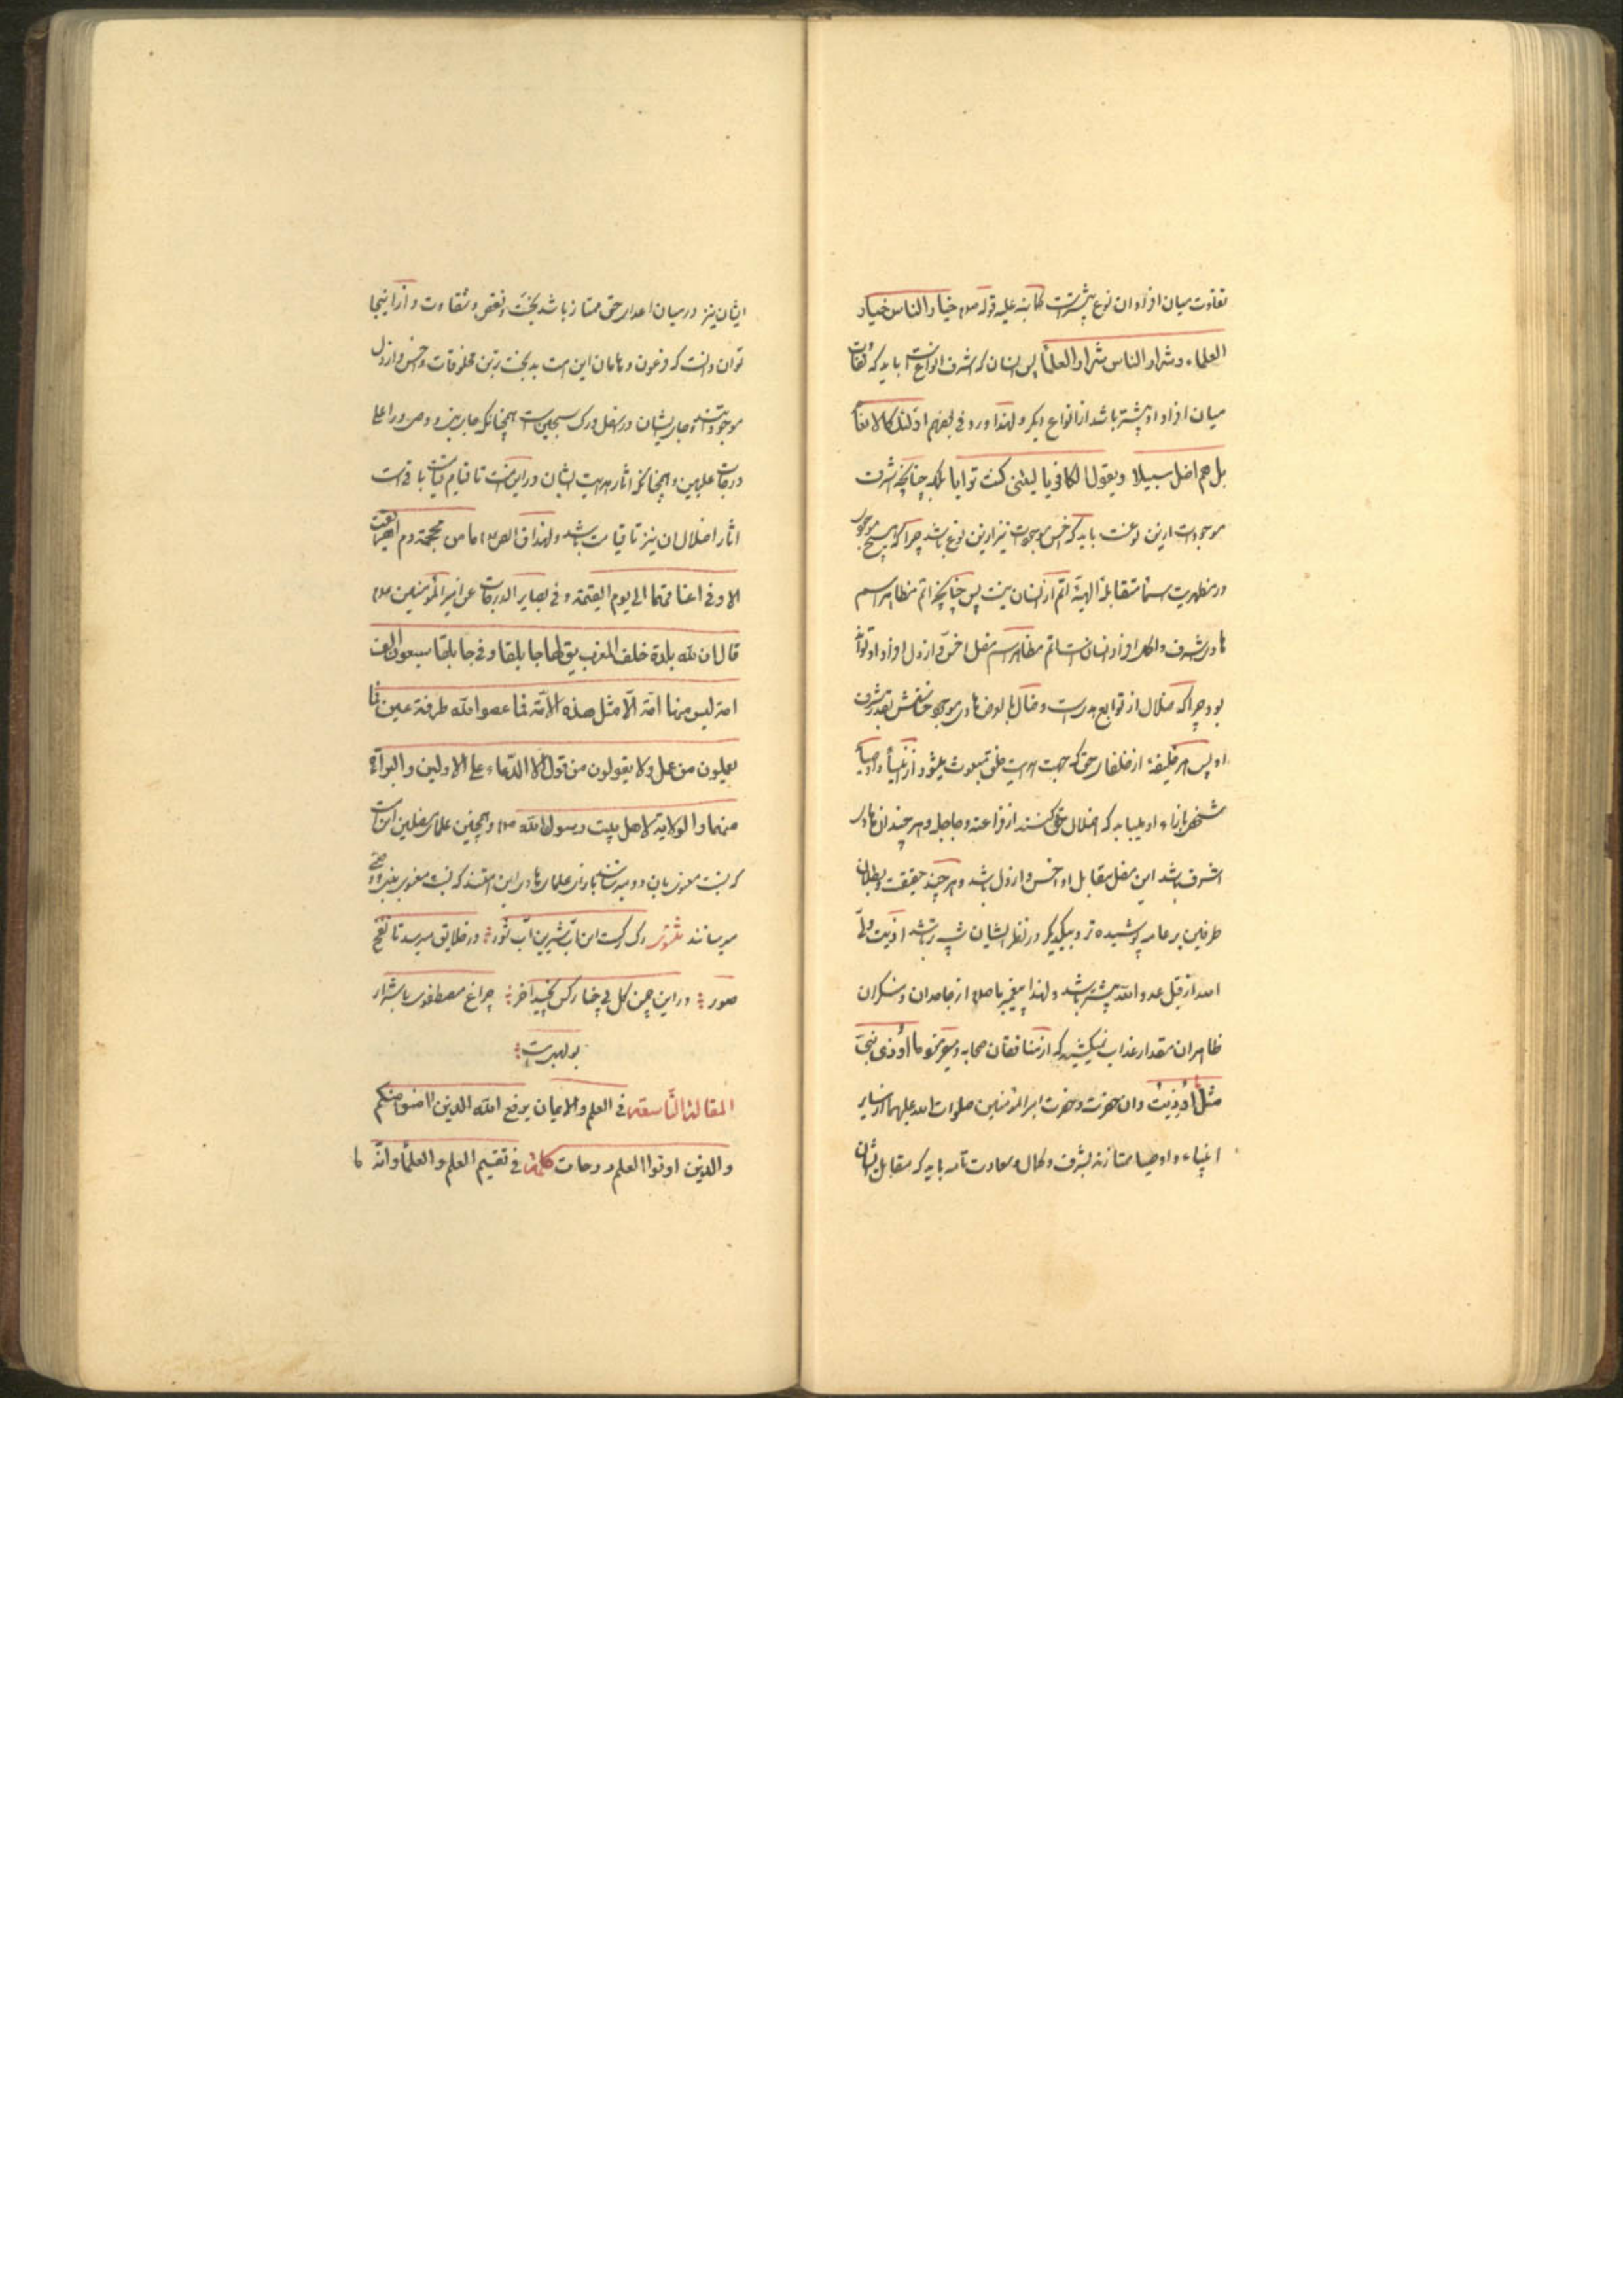 تفاوت میان افراد ان نوع بیشترست کما نبه علیه قوله صلم خیار الناس خیار
العلماء و شرار الناس شرار العلماء پس انسان که اشرف انواعست باید که تفاوت
میان افراد او بیشتر باشد از انواع دیگر و لهذا ورد فی بعضهم اولئک کالانعام
بل هم اضل سبیلا و یقول الکافر یا لیتنی کنت ترابا بلکه چنانچه اشرف
موجودات ازین نوعست باید که اخس موجودات نیز ازین نوع باشد چرا که هیچ موجود
در مظهریت اسماء متقابلهٔ الهیه اتم از انسان نیست پس چنانچه اتم مظاهر اسم
هادی اشرف و اکمل افراد انسانست اتم مظاهر اسم مضل اخس و ارذل افراد او تواند
بود چرا که ضلال از توابع هدایت و مضل بالعرض هادی بقدر شرف
او پس هر خلیفهٔ از خلفای حق که جهت هدایت خلق مبعوث میشود از انبیا و اولیا
شخصی بازاء او میباید که اضلال خلق کند از فراعنه و دجاجله و هر چند ان هادی
اشرف باشد این مضل مقابل او اخس و ارذل باشد و هر چند حقیقت و بطلان
طرفین بر عامه پوشیده تر و بیکدیگر در نظر ایشان شبیه تر باشد اذیت ولی
الله از قبل عدو الله بیشتر باشد و لهذا پیغمبر ما صلم از جاحدان و منکران
ظاهر ان مقدار عذاب نمیکشید که از منافقان صحابه ما اوذی نبی
مثل ما اوذیت و ان حضرت و حضرت امیر المؤمنین صلوات الله علیهما از سایر
انبیاء و اوصیا ممتازند بشرف و کمال و سعادت تامه باید که مقابل ایشان
ایشان نیز در میان اعدای حق ممتاز باشد بخست و نقص و شقاوت و از اینجا
توان دانست که فرعون و هامان این امت بدبخت ترین مخلوقات و اخس و ارذل
موجوداتند و جای ایشان در اسفل درک سجین است همچنانکه جای پیغمبر و وصی در اعلی
درجات علیین و همچنانکه اثار هدایت ایشان در این امت تا قیام قیامت باقی است
اثار اضلال ان نیز تا قیامت باشد و لهذا قال الص ع ما من محجمة دم اهریقت
الا و فی اعناقهما الی یوم القیمة و فی بصایر الدرجات عن امیر المؤمنین ع
قال ان لله بلدة خلف المغرب یق لها جابلقا و فی جابلقا سبعون الف
امة لیس منها امة الا مثل هذه الامة فما عصوا الله طرفة عین فما
یعملون من عمل و لا یقولون من قول الا الدعاء علی الاولین و البراءة
منهما و الولایة لاهل بیت رسول الله صلم و همچنین علمای مضلین این امت
که نسبت
میرسانند مثنوی رک رکست این اب شیرین اب شور در خلایق میرسد تا نفخ
صور در این چمن کل بی خار کس نچید اخر چراغ مصطفوی با شرار
بولهبیست
المقالة التاسعة فی العلم و الایمان یرفع الله الذین امنوا منکم
و الذین اوتوا العلم درجات کلمة فی تقسیم العلم و العلماء و انه لا